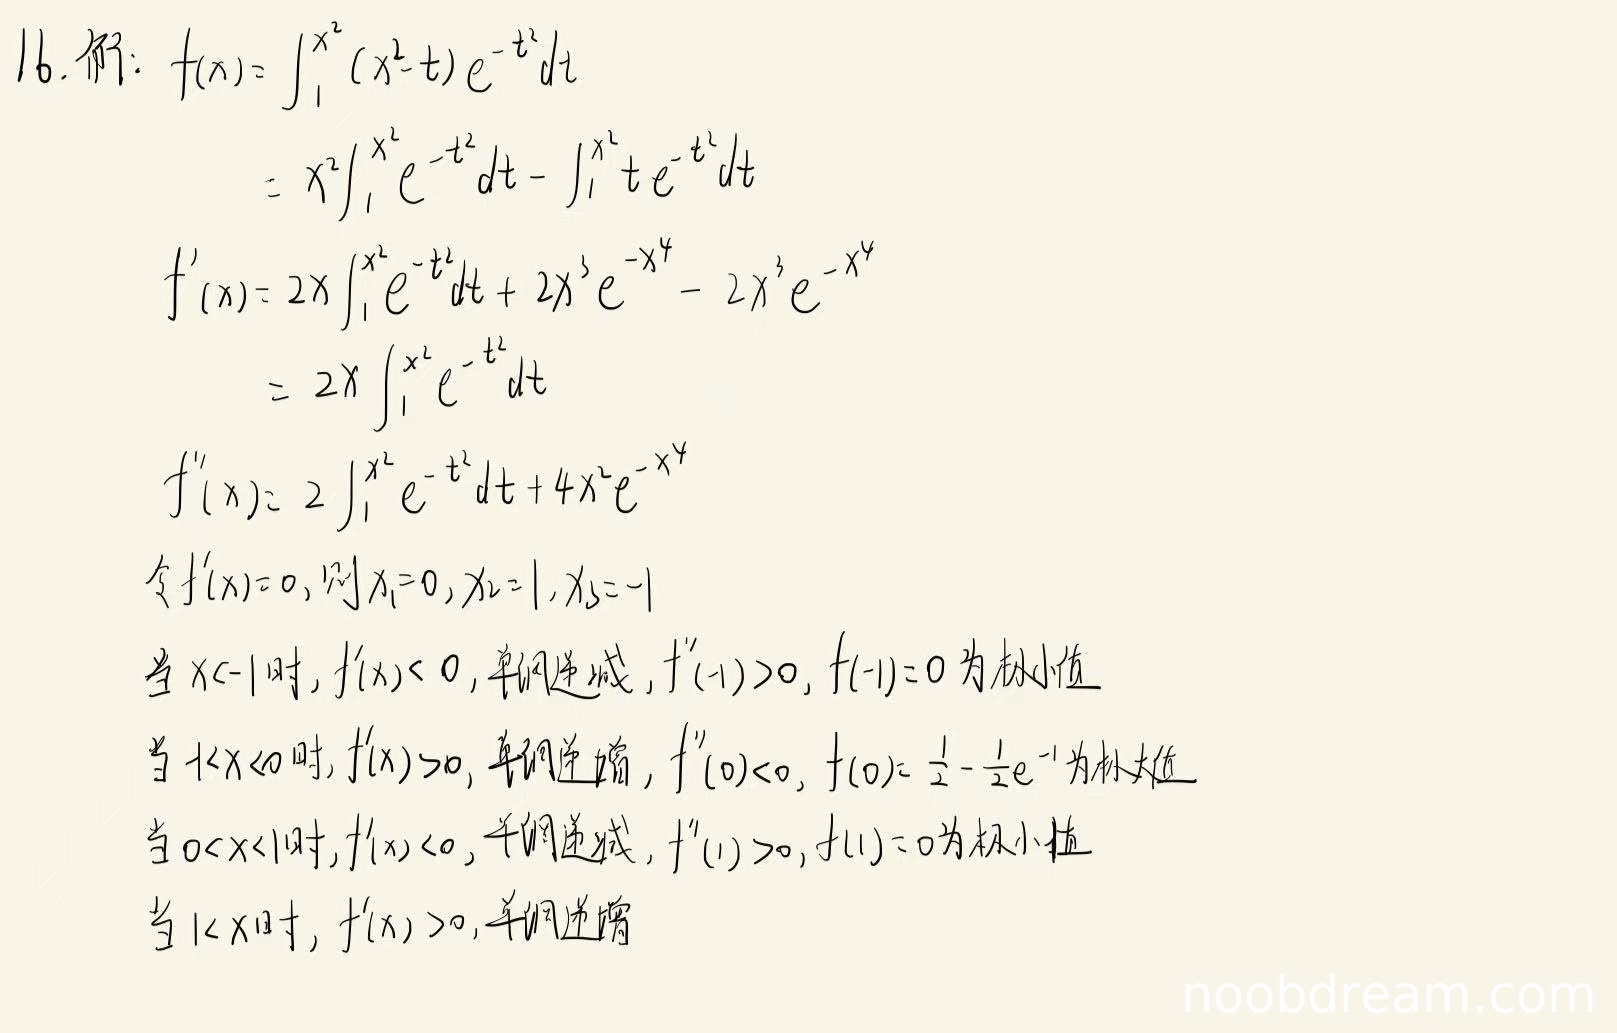 16.解: f(x)=∫₁^{x²}(x²-t)e^{-t²}dt
=x²∫₁^{x²}e^{-t²}dt-∫₁^{x²}te^{-t²}dt
f'(x)=2x∫₁^{x²}e^{-t²}dt+2x³e^{-x⁴}-2x³e^{-x⁴}
=2x∫₁^{x²}e^{-t²}dt
f''(x)=2∫₁^{x²}e^{-t²}dt+4x²e^{-x⁴}
令f'(x)=0,则x₁=0,x₂=1,x₃=-1
当x<-1时,f'(x)<0,单调递减,f''(-1)>0,f(-1)=0为极小值
当-1<x<0时,f'(x)>0,单调递增,f''(0)<0,f(0)=1/2-1/2e^{-1}为极大值
当0<x<1时,f'(x)<0,单调递减,f''(1)>0,f(1)=0为极小值
当1<x时,f'(x)>0,单调递增
noobdream.com